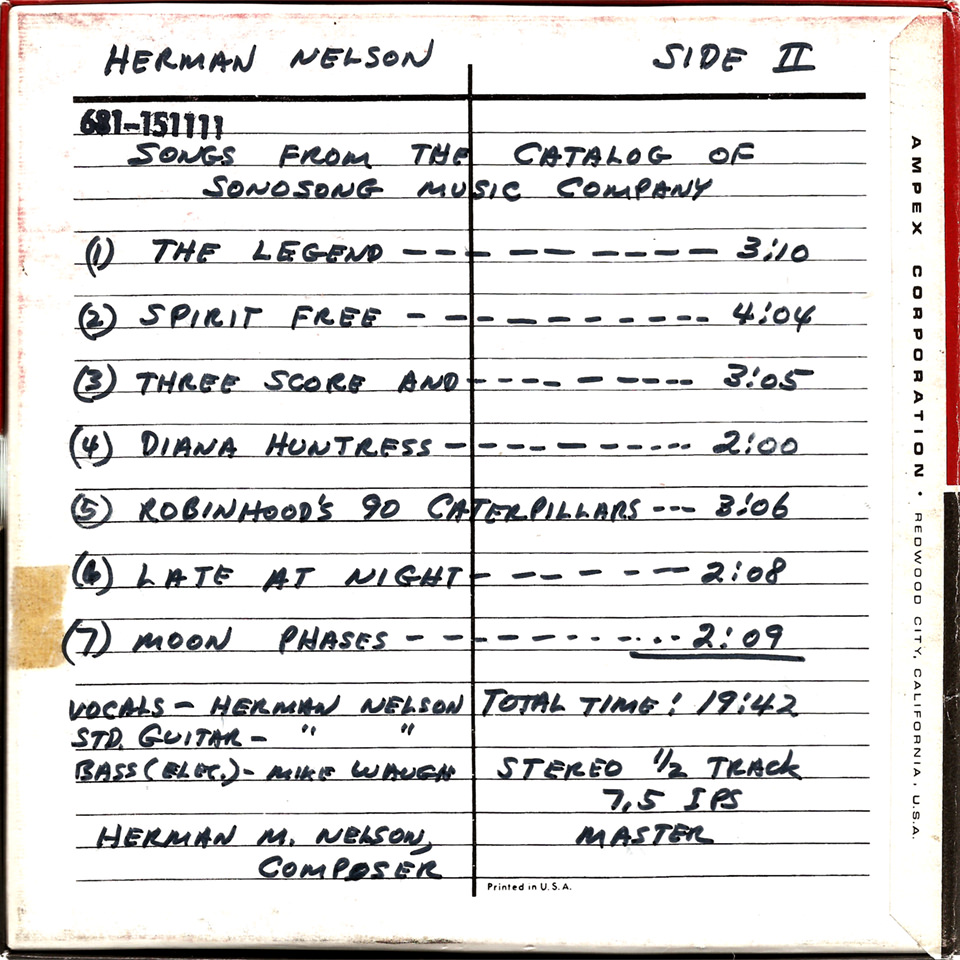 HERMAN NELSON SIDE II
681-151111
SONGS FROM THE CATALOG OF
SONOSONG MUSIC COMPANY
(1) THE LEGEND --------- 3:10
(2) SPIRIT FREE ---------- 4:04
(3) THREE SCORE AND --------- 3:05
(4) DIANA HUNTRESS --------- 2:00
(5) ROBINHOOD'S 90 CATERPILLARS --- 3:06
(6) LATE AT NIGHT ------- 2:08
(7) MOON PHASES ------------ 2:09
VOCALS - HERMAN NELSON TOTAL TIME: 19:42
STD. GUITAR - " "
BASS (ELEC.) - MIKE WAUGH STEREO 1/2 TRACK
7.5 IPS
HERMAN M. NELSON, MASTER
COMPOSER
Printed in U.S.A.
AMPEX CORPORATION • REDWOOD CITY, CALIFORNIA, U.S.A.